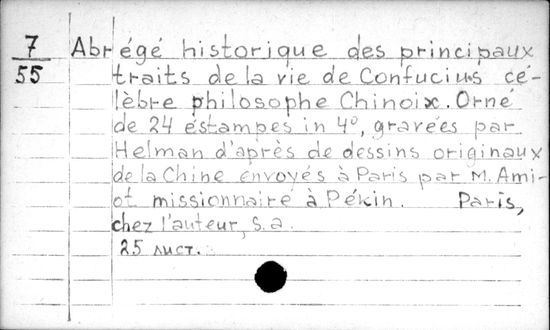 7
55
Abrégé historique des principaux
traits de la vie de Confucius cé-
lèbre philosophe Chinoix. Orné
de 24 éstampes in 4°, gravées par
Helman d'après de dessins originaux
de la Chine envoyés à Paris par M. Ami-
ot missionnaire à Pékin. Paris,
chez l'auteur, s.a.
25 лист.